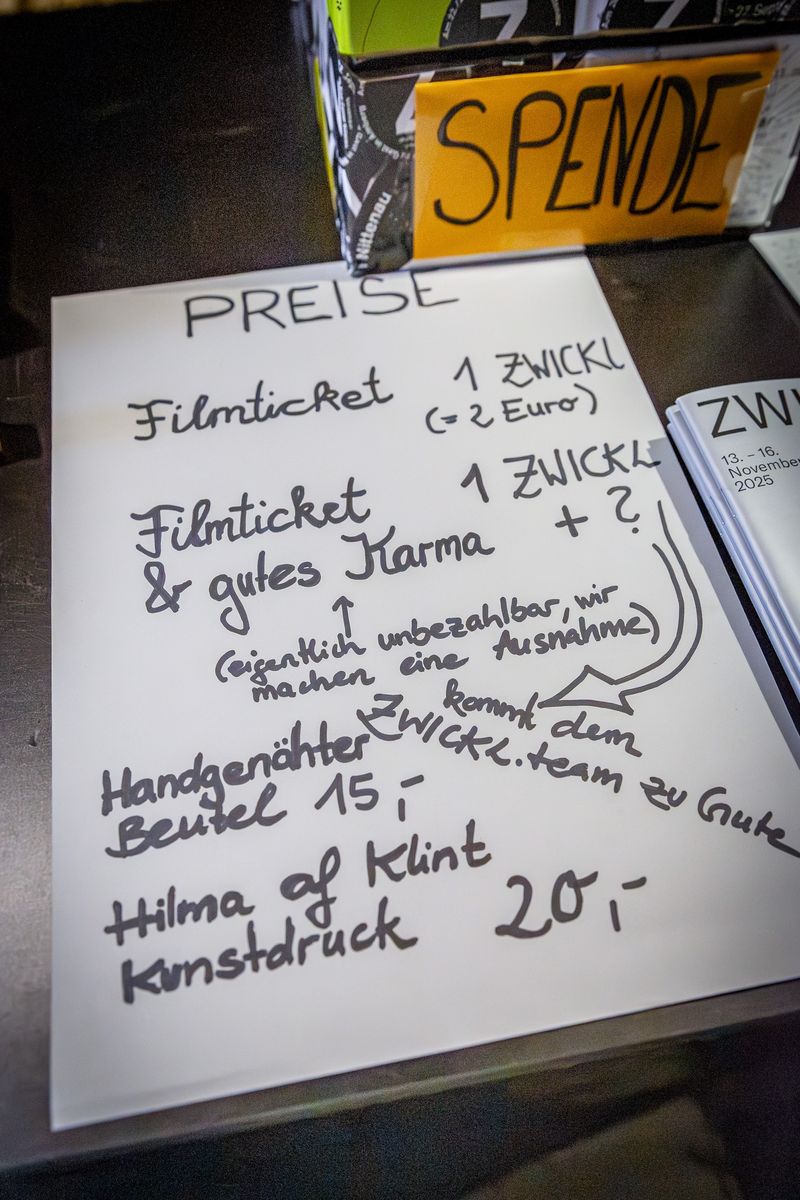 SPENDE
Nittenau
PREISE
Filmticket 1 ZWICKL
(= 2 Euro)
Filmticket 1 ZWICKL
& gutes Karma + ?
(eigentlich unbezahlbar, wir
machen eine Ausnahme)
kommt dem
ZWICKL.team zu Gute
Handgenähter
Beutel 15,-
Hilma af Klint
Kunstdruck 20,-
ZWI
13. – 16.
November
2025